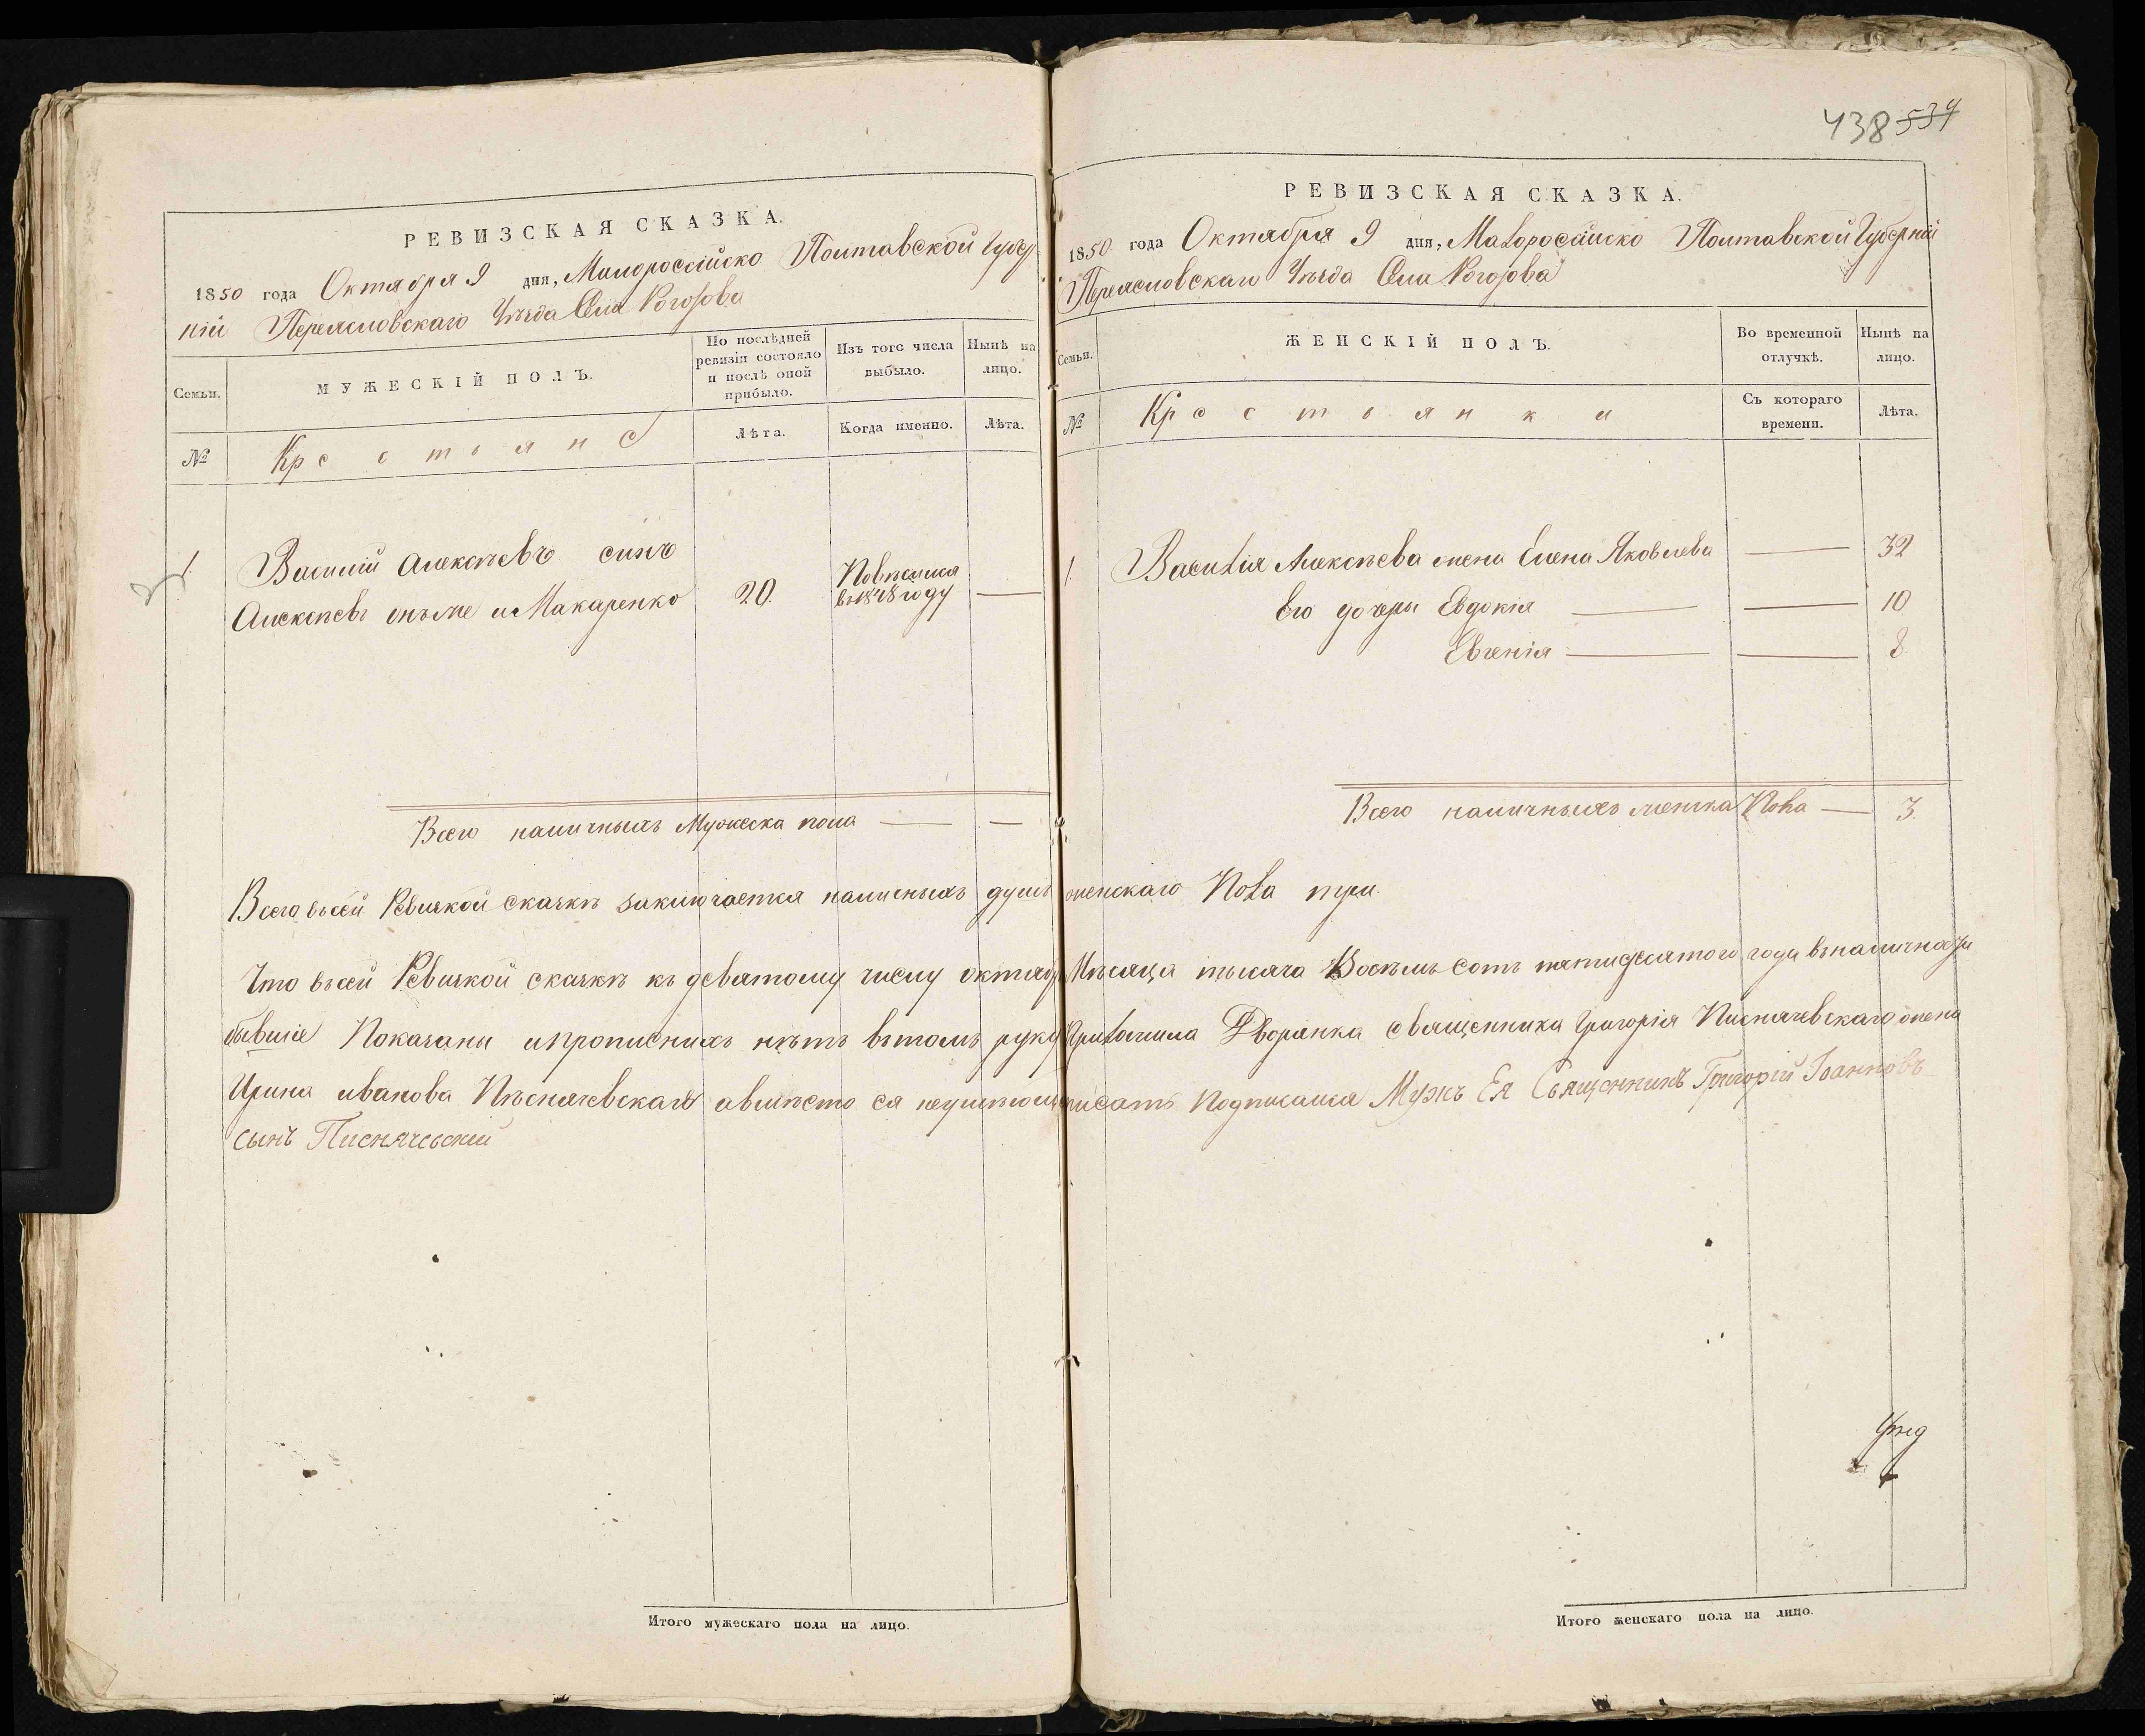 438 534
РЕВИЗСКАЯ СКАЗКА.
1850 года Октября 9 дня, Малоросейско Полтавской Губер
ніи Переясловскаго Уѣзда Села Рогозова
Семьи.
МУЖЕСКІЙ ПОЛЪ.
По послѣдней ревизіи состояло и послѣ оной прибыло.
Изъ того числа выбыло.
Нынѣ на лицо.
№
Крестьяне
Лѣта.
Когда именно.
Лѣта.
1. Василий Алексѣевъ синъ
Алексѣевъ онъ же и Макаренко 20. Повѣсился в 1848 году —
Всего наличныхъ Мужеска пола — —
РЕВИЗСКАЯ СКАЗКА.
1850 года Октября 9 дня, Малоросейско Полтавской Губерніи
Переясловскаго Уѣзда Села Рогозова
Семьи.
ЖЕНСКІЙ ПОЛЪ.
Во временной отлучкѣ.
Нынѣ на лицо.
№
Крестьянки
Съ котораго времени.
Лѣта.
1. Василія Алексѣева жена Елена Яковлева — 32
Его дочеры Евдокія — — 10
Евгенія — — 8
Всего наличныхъ женска Пола — 3
Всего въ сей Ревизкой сказкѣ заключается наличныхъ душъ женскаго Пола три.
Что въ сей Ревизкой сказкѣ къ девятому числу октяб Мѣсяца тысяча Восѣмъ сотъ пятидесятого года в наличнос
бывшіе Показаны и прописнихъ нѣтъ в томъ руку Приложила Дворянка священника Григорія Пѣснячевскаго жена
Ирина иванова Пѣснячевская а вмѣсто ея неумѣющ писать Подписался Мужъ Ея Священникъ Григорій Іоанновъ
сынъ Песнячевскій
Итого мужескаго пола на лицо.
Итого женскаго пола на лицо.